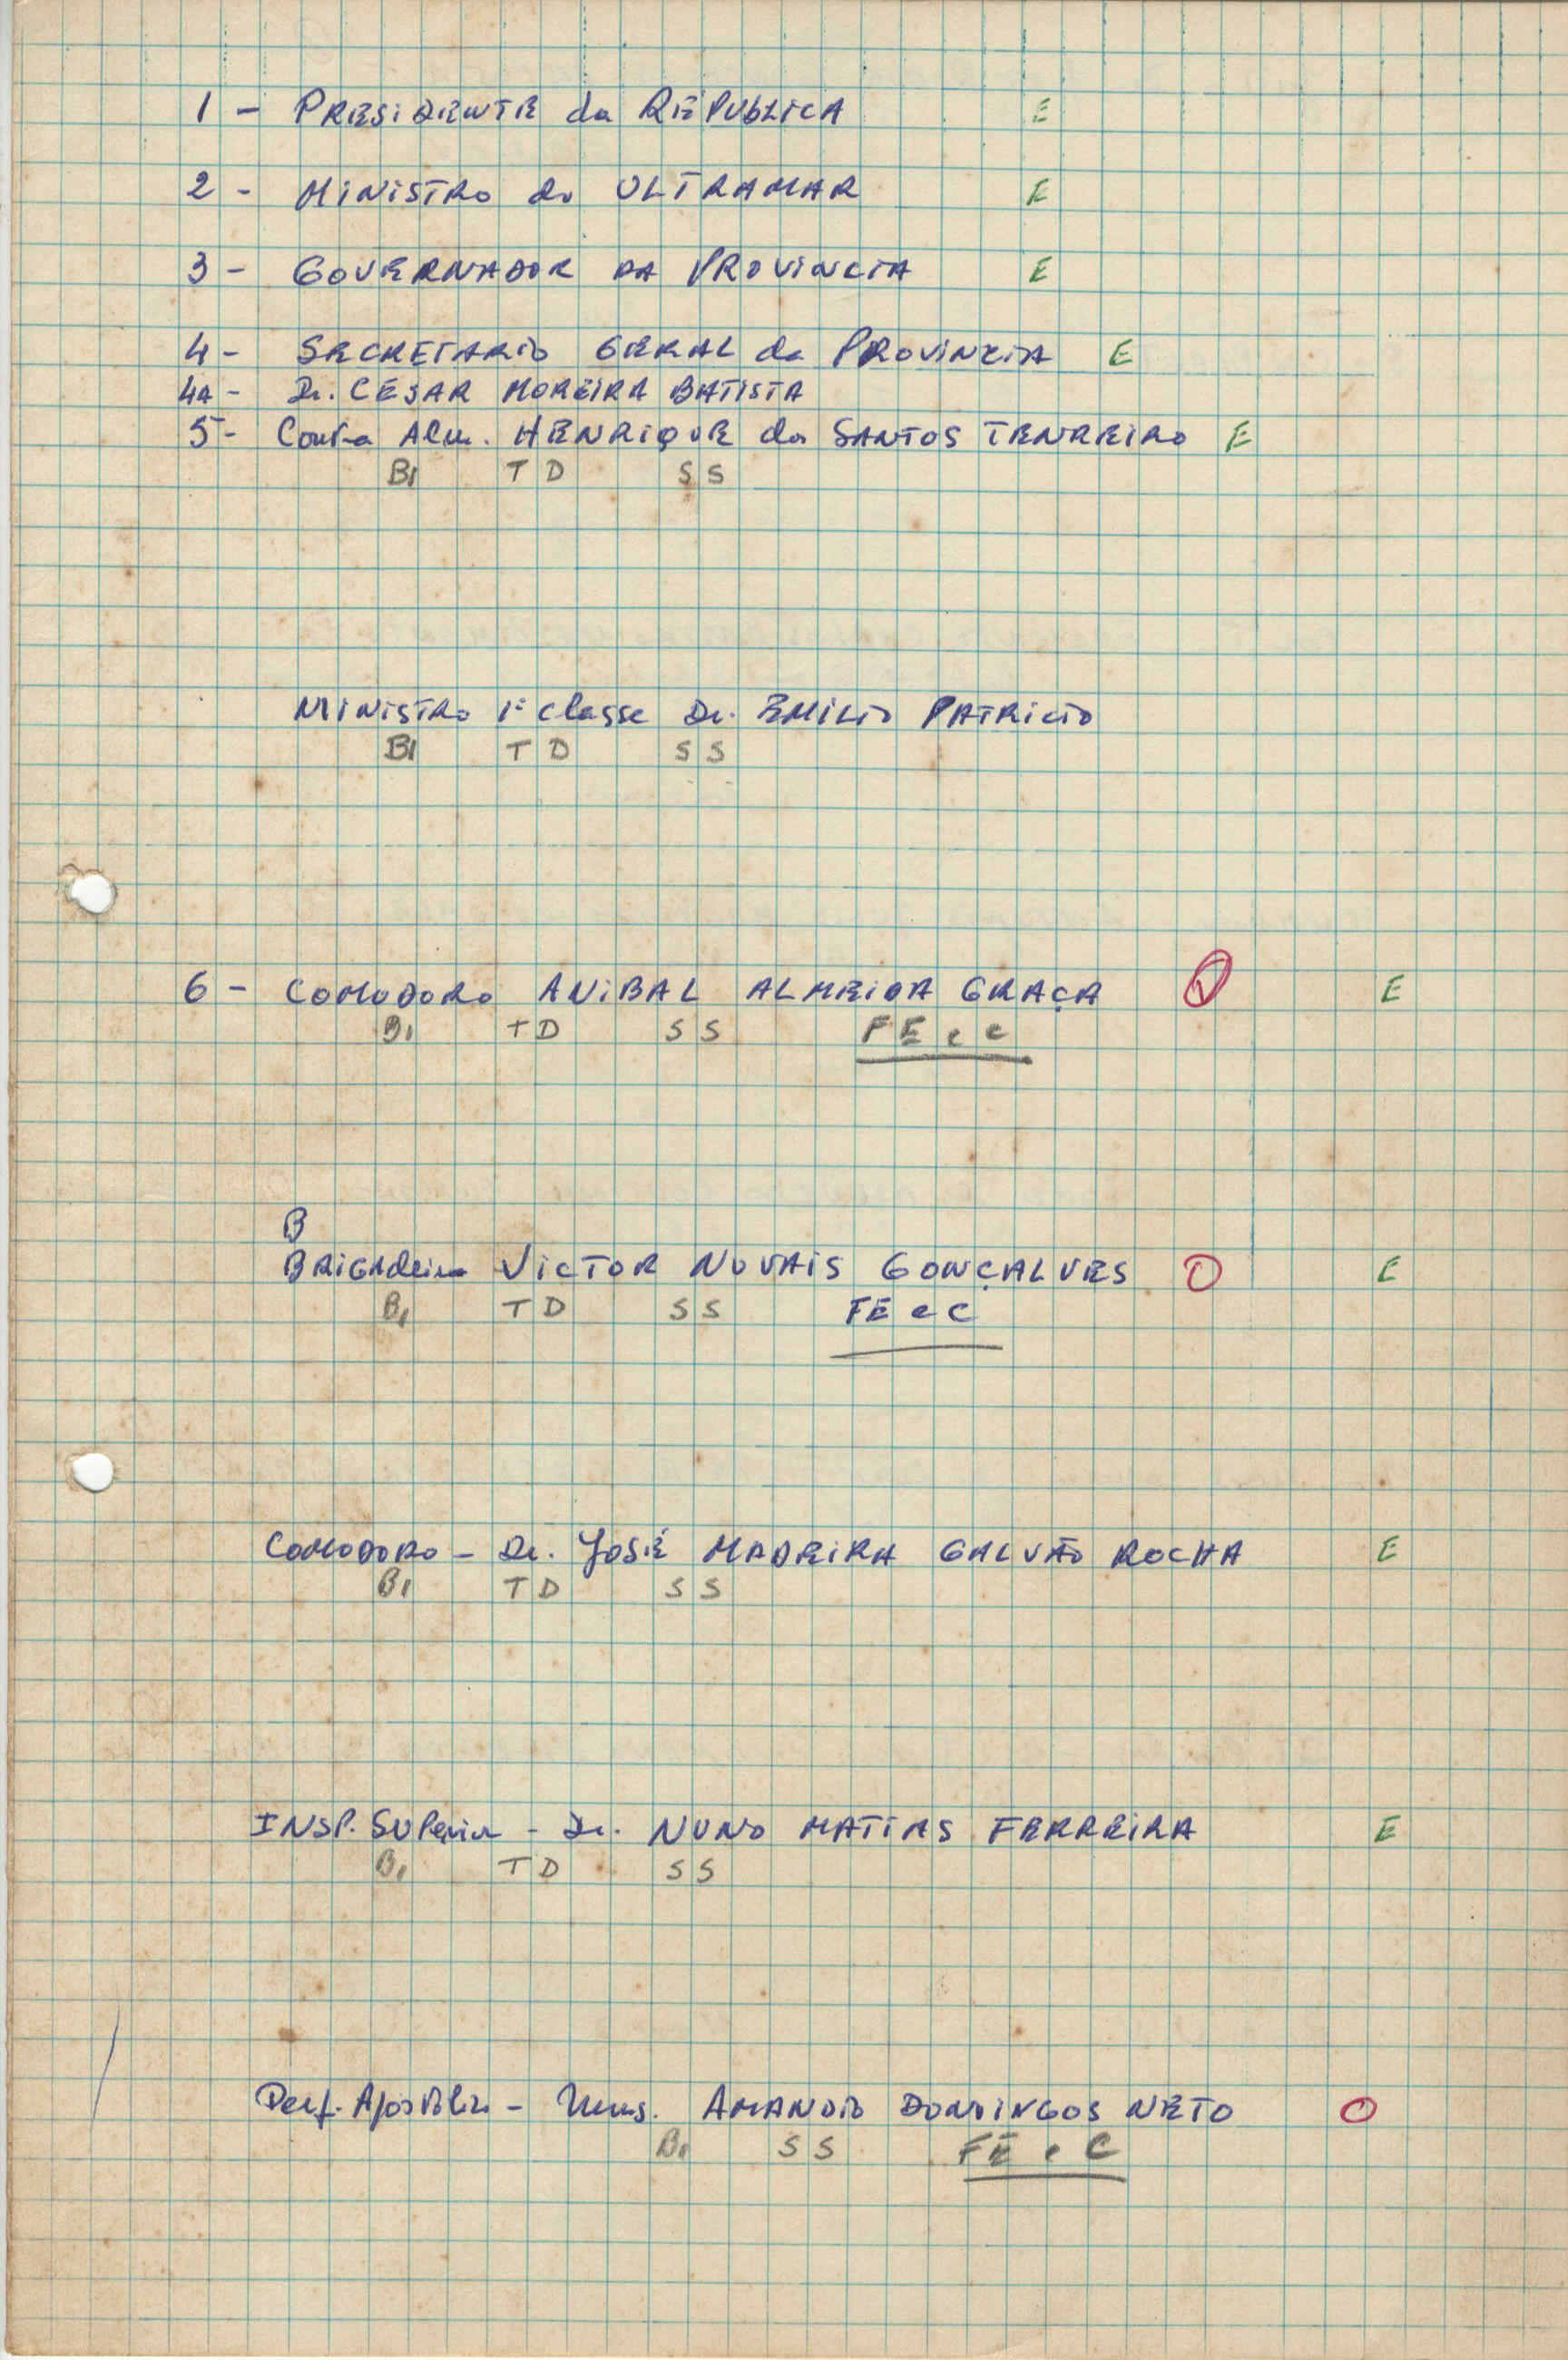 1 - PRESIDENTE da REPUBLICA E
2 - MINISTRO do ULTRAMAR E
3 - GOVERNADOR DA PROVINCIA E
4 - SECRETARIO GERAL da PROVINCIA E
4A - Dr. CESAR MOREIRA BATISTA
5 - Contra Alm. HENRIQUE dos SANTOS TENREIRO E
B1 T D S S
MINISTRO 1ª Classe Dr. EMILIO PATRICIO
B1 T D S S
6 - COMODORO ANIBAL ALMEIDA GRAÇA O E
B1 T D S S F E e C
B
BRIGAdeiro VICTOR NOVAIS GONÇALVES O E
B1 T D S S FE e C
COMODORO - Dr. JOSÉ MADEIRA GALVÃO ROCHA E
B1 T D S S
INSP. SUPerior - Dr. NUNO MATIAS FERREIRA E
B1 T D S S
Apostólico - Mons. AMANDIO DOMINGOS NETO O
B1 S S FE e C